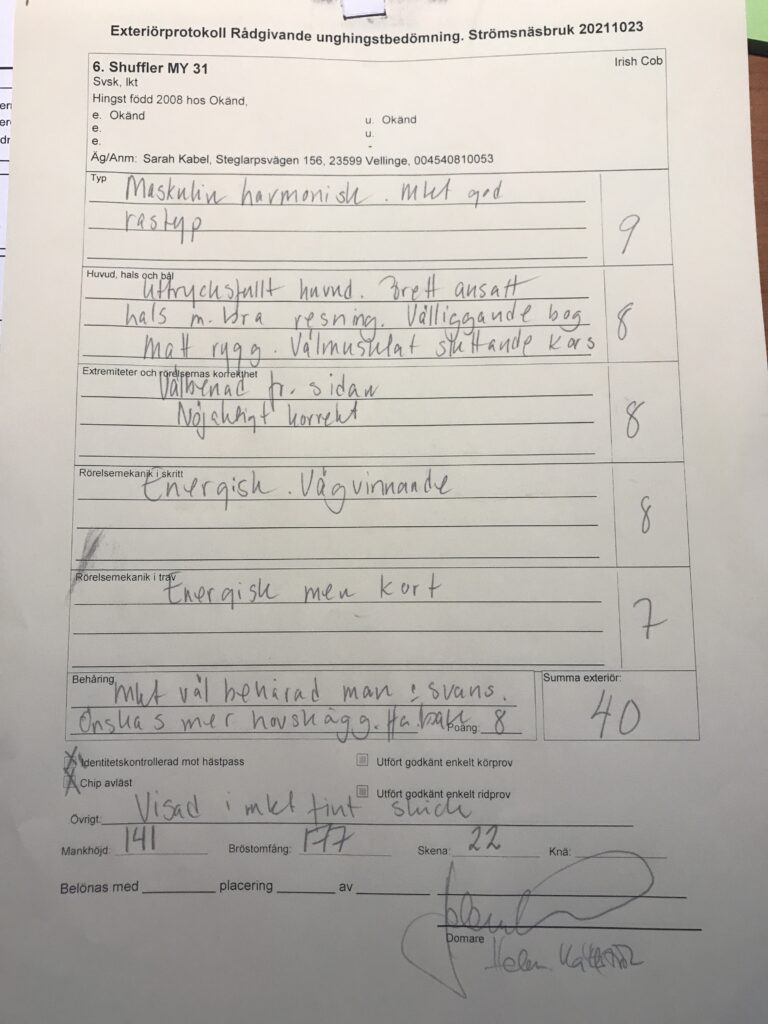 Exteriörprotokoll Rådgivande unghingstbedömning. Strömsnäsbruk 20211023
6. Shuffler MY 31
Irish Cob
Svsk, Ikt
Hingst född 2008 hos Okänd,
e. Okänd
u. Okänd
e.
u.
e.
-
Äg/Anm: Sarah Kabel, Steglarpsvägen 156, 23599 Vellinge, 004540810053
Typ
Maskulin harmonisk. Mkt god
rastyp
9
Huvud, hals och bål
Uttrycksfullt huvud. Brett ansatt
hals m. bra resning. Välliggande bog
Matt rygg. Välmusklat sluttande kors
8
Extremiteter och rörelsernas korrekthet
Välbenad fr. sidan
Nöjaktigt korrekt
8
Rörelsemekanik i skritt
Energisk. Vägvinnande
8
Rörelsemekanik i trav
Energisk men kort
7
Behåring
Mkt väl behårad man & svans.
Önskas mer hovskägg. Ha. bak
Poäng: 8
Summa exteriör:
40
X Identitetskontrollerad mot hästpass
Utfört godkänt enkelt körprov
X Chip avläst
Utfört godkänt enkelt ridprov
Övrigt: Visad i mkt fint skick
Mankhöjd: 141 Bröstomfång: 177 Skena: 22 Knä:
Belönas med placering av
Domare
Helen